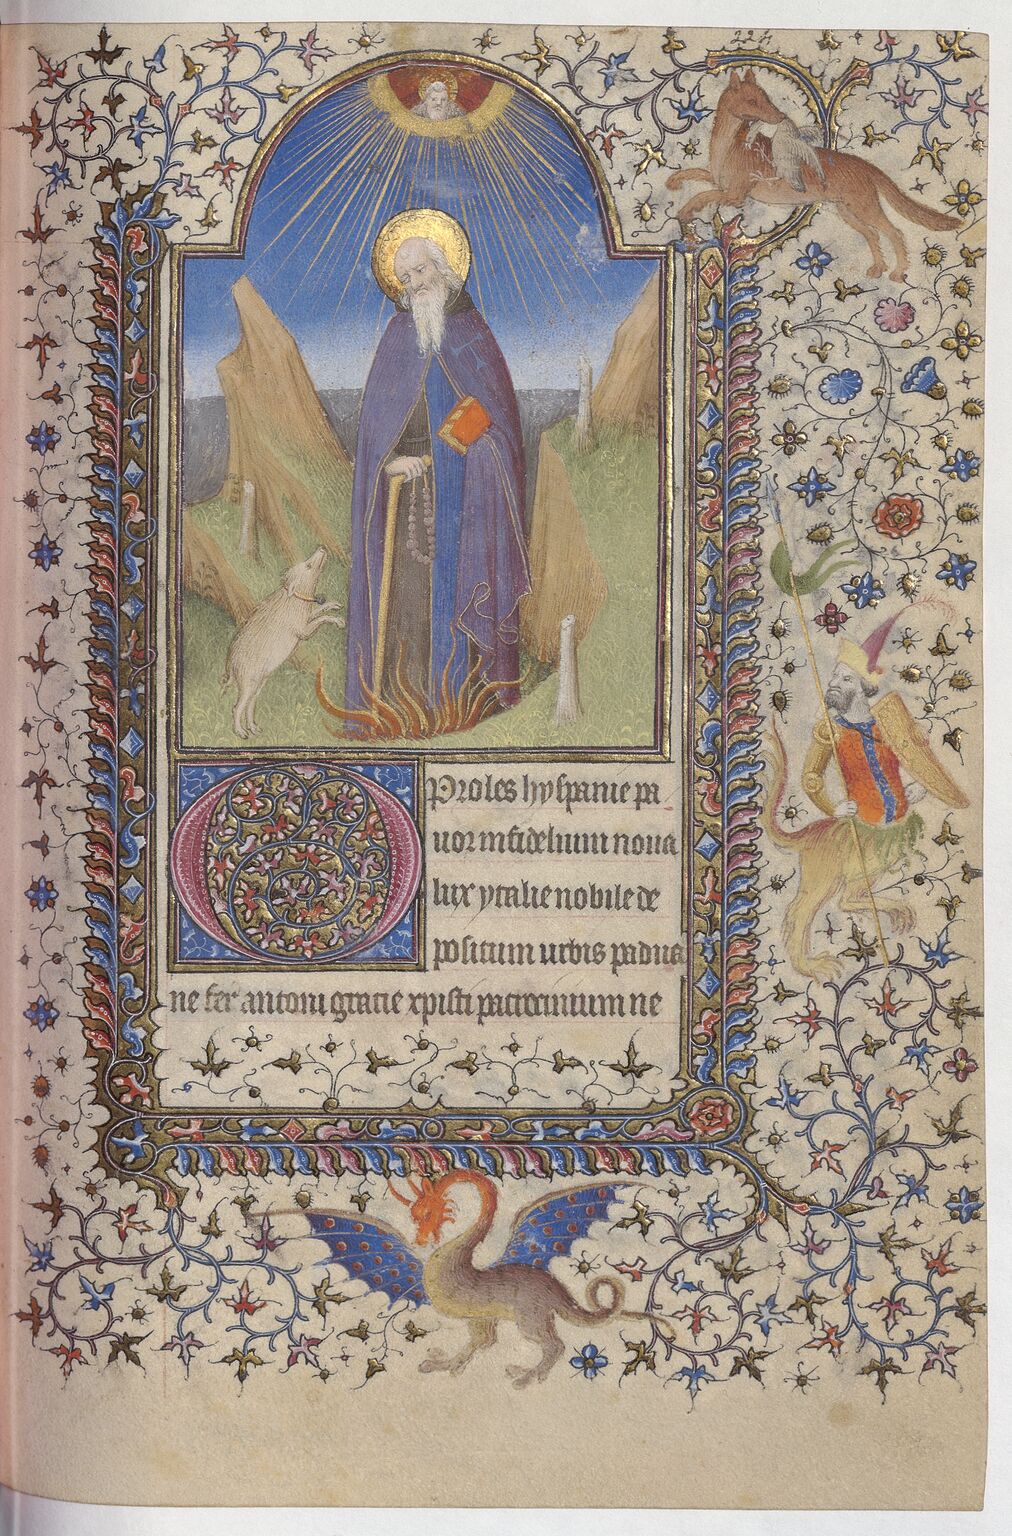 O Proles hyspanie pa
uor infidelium noua
lux ytalie nobile de
positum urbis padua
ne fer antoni gracie xpisti patrocinium ne